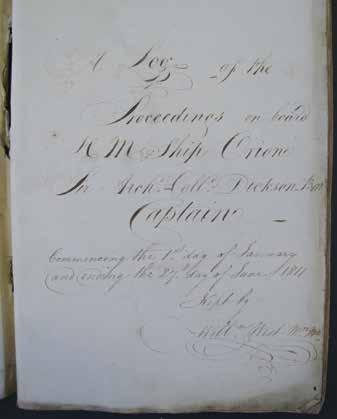 A Log
of the
Proceedings on board
H M Ship Orion
Sir Archd. Colld. Dickson Bart.
Captain
Commencing the 1st day of January
and ending the 27th day of June 1811
Kept by
Willm West